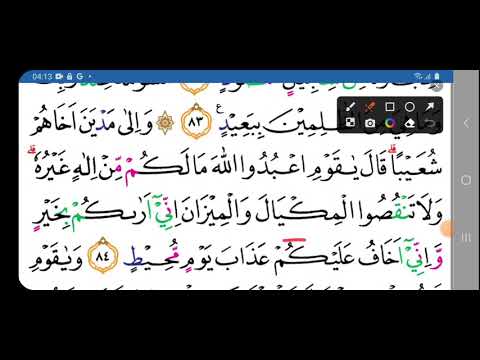 04:13
الظّٰلِمٖينَ بِبَعٖيدٍ ﴿٨٣﴾ وَاِلٰى مَدْيَنَ اَخَاهُمْ
شُعَيْبًاۜ قَالَ يَا قَوْمِ اعْبُدُوا اللّٰهَ مَا لَكُمْ مِنْ اِلٰهٍ غَيْرُهُۜ
وَلَا تَنْقُصُوا الْمِكْيَالَ وَالْمٖيزَانَ اِنّٖٓي اَرٰيكُمْ بِخَيْرٍ
وَاِنّٖٓي اَخَافُ عَلَيْكُمْ عَذَابَ يَوْمٍ مُحٖيطٍ ﴿٨٤﴾ وَيَا قَوْمِ